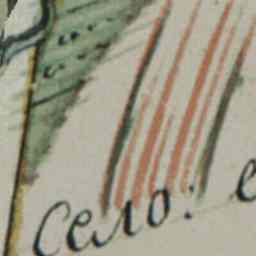 Село: е